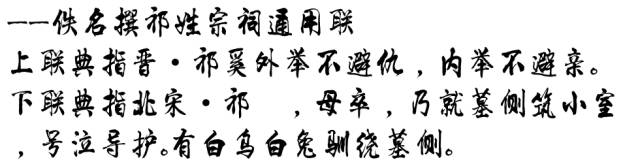 ——佚名撰祁姓宗祠通用联
上联典指晋·祁奚外举不避仇，内举不避亲。
下联典指北宋·祁　，母卒，乃就墓侧筑小室
，号泣导护。有白鸟白兔驯绕墓侧。